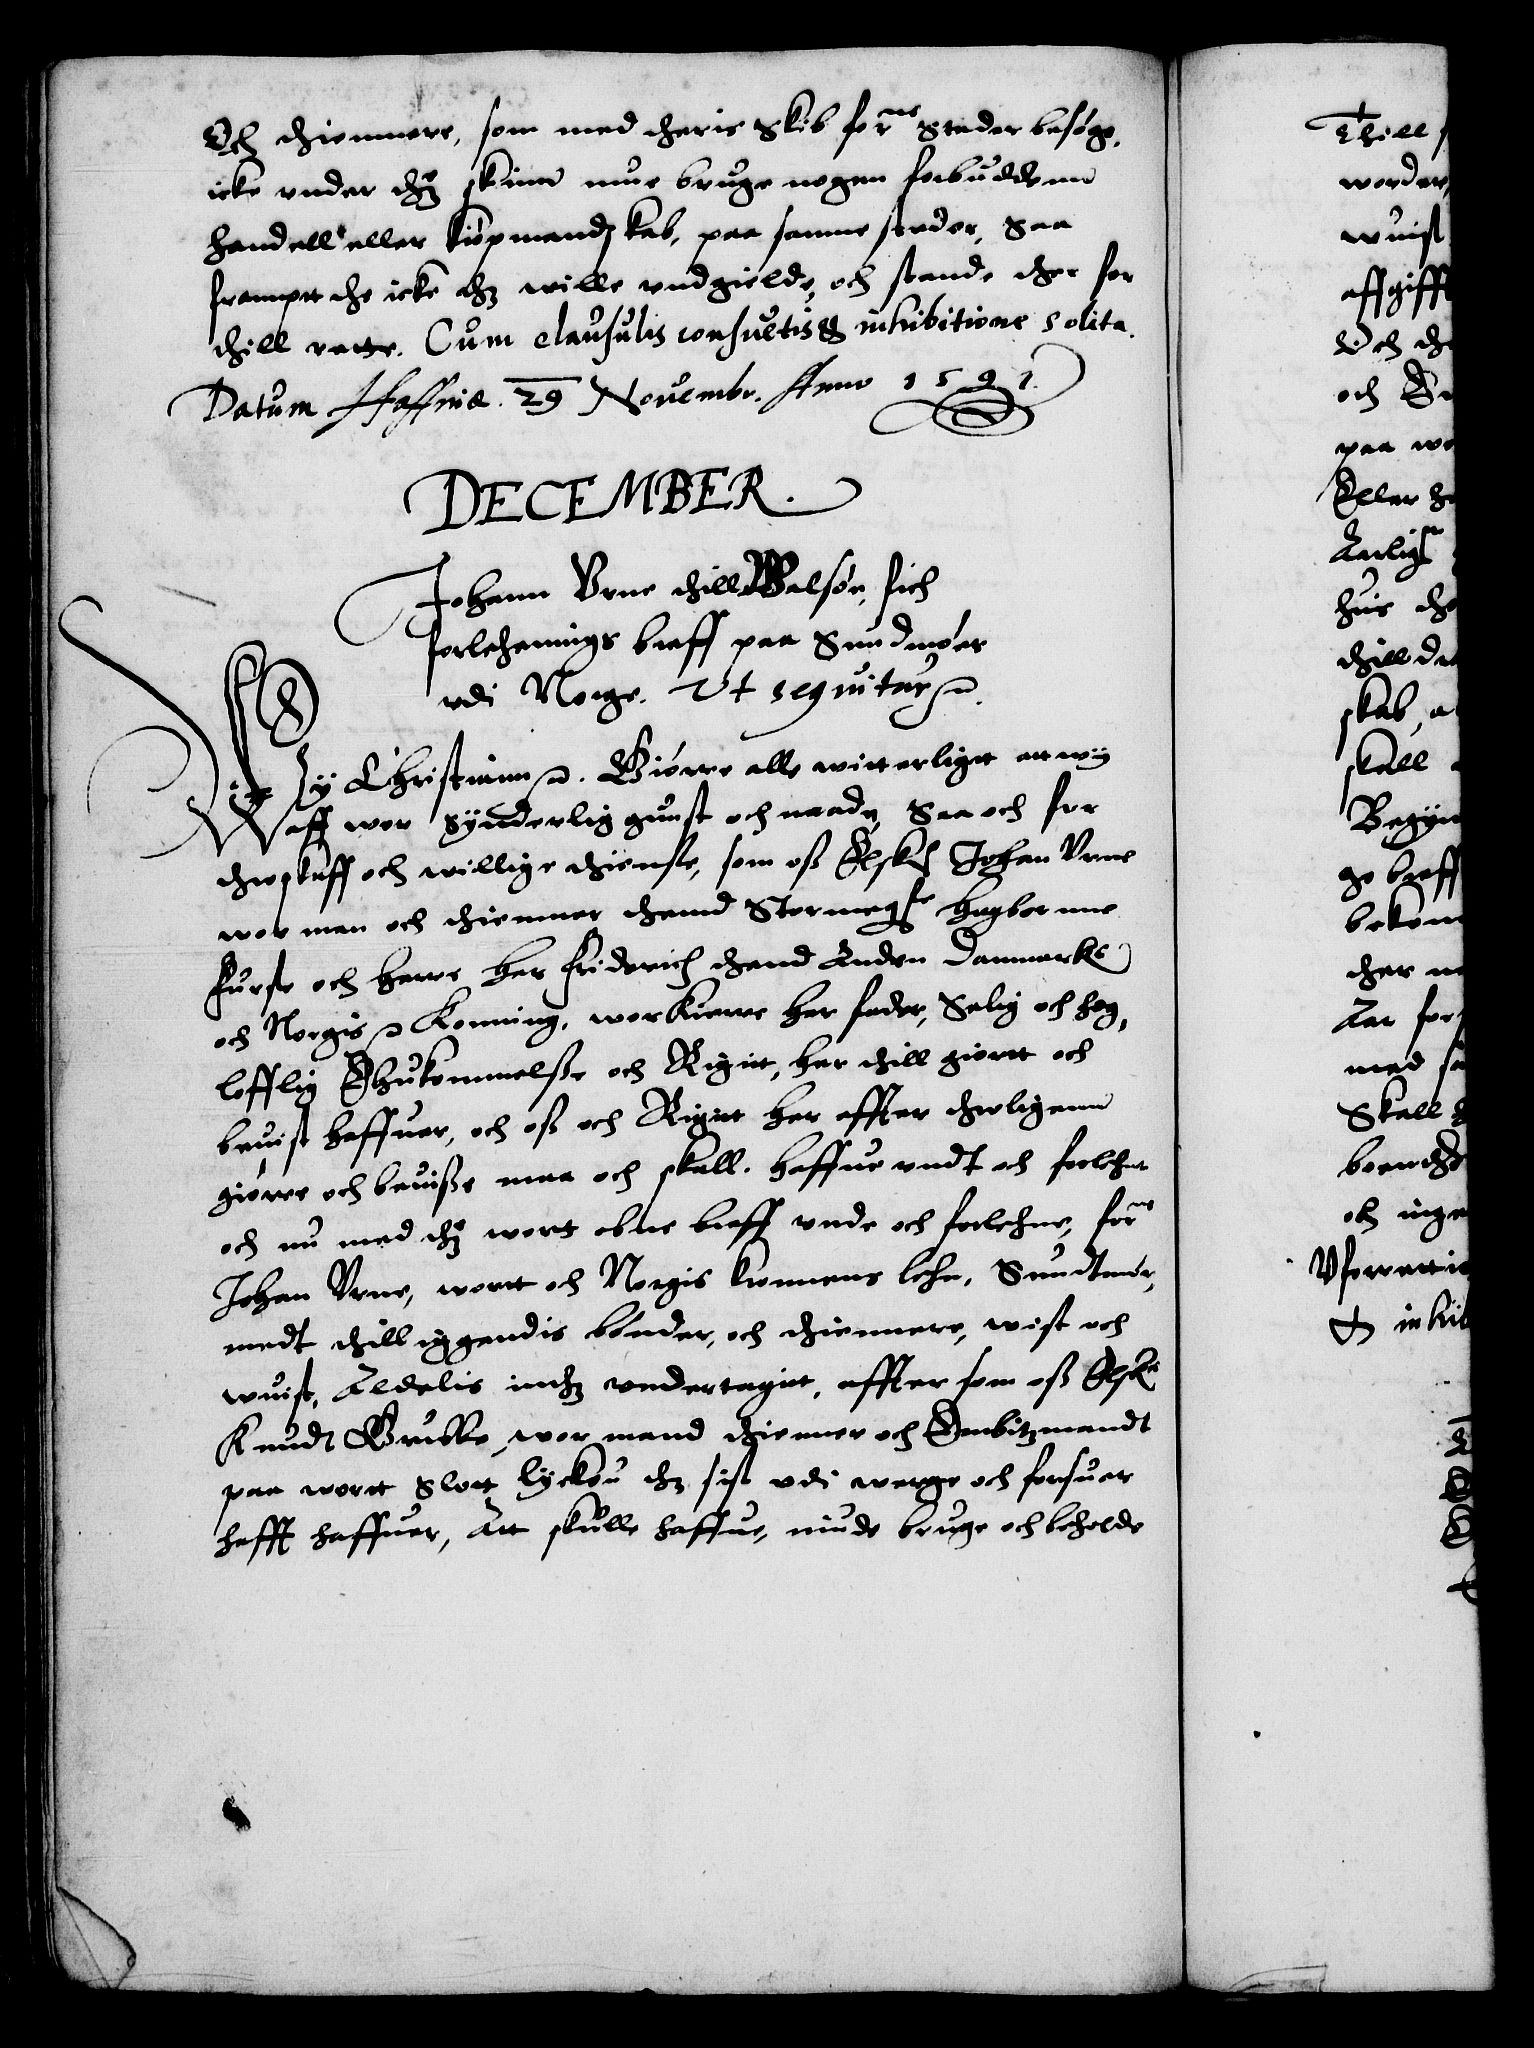 Och thiennere, som med theris Skib for:ne Steder besøge,
icke vnder thz skinn mue bruge nogen forbuddenn
handell eller Kiøpmandskab, paa samme steder, Saa
frempt the icke thz wille vndgielde, och stande ther for
thill rette. Cum clausulis consuetis & inhibitione solita.
Datum Haffniæ. 29 Novembr. Anno 1591.
DECEMBER.
Johann Vrne thill Walsøe, fich
forlehennings breff paa Sundmøer
vdi Norge. Vt sequitur
Wy Christiann. Giørre alle witterligtt att wy
aff wor synderlig gunst och naade, Saa och for
throskaff och willige thienste, som oss Elskel Johan Vrne
wor man och thienner thend Stormegtigste Høgborne
Furste och herre Her Friderich thend Anden Danmarks
och Norgis Konning, wor kiere Her fader, Salig och høg,
lofflig Ihukommelsse och Rigitt, her thill giortt och
beuist haffuer, och oss och Rigitt her effter throligenn
giørre och beuisse maa och skall. haffue vndt och forlehnt
och nu med thz wort obne breff vnde och forlehne, for:ne
Johan Vrne, wortt och Norgis kronnens lehn, Sundtmør,
medt thilliggendis bønder, och thiennere, wist och
wuist, Aldelis inthz vndertagitt, effter som oss Elskel
Knudt Grubbe, wor mand thienner och Embitzmandt
paa wortt Slott lyckou thz sist vdi werge och forsuar
hafft haffuer, Att skulle haffue, niude bruge och beholde